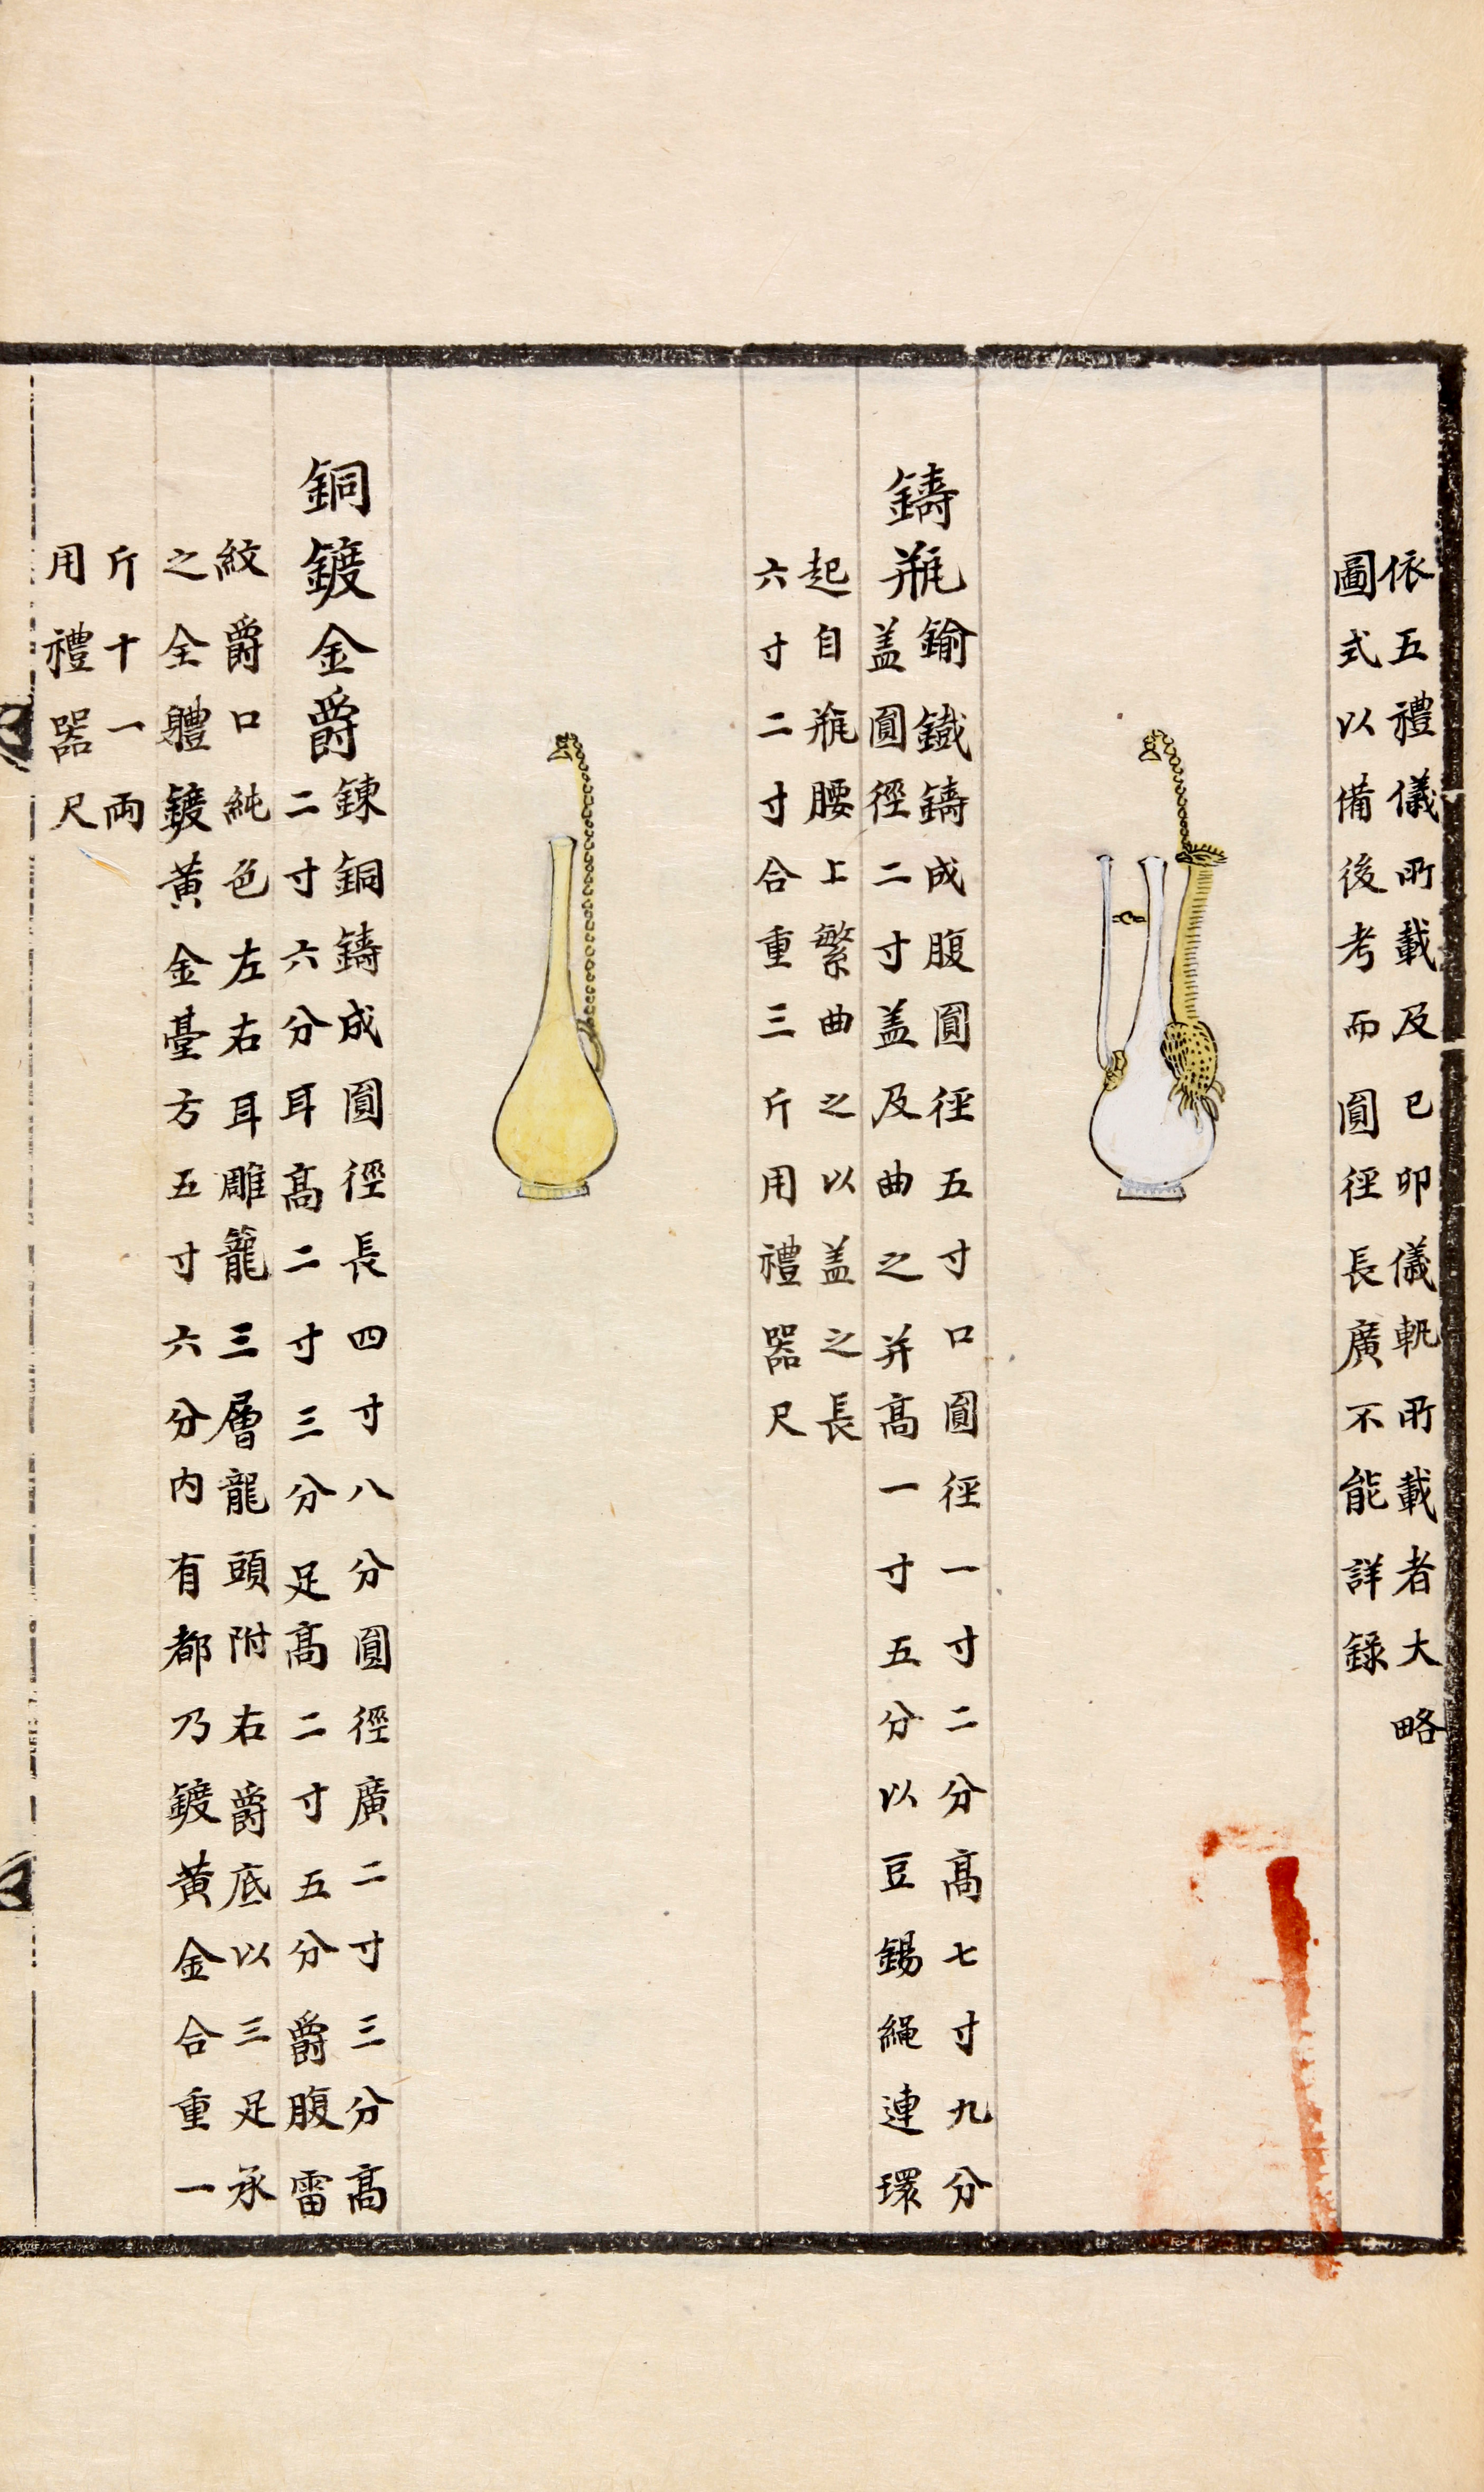 依五禮儀所載及已卯儀軌所載者大略
圖式以備後考而圓徑長廣不能詳録
鑄瓶
鍮鐵鑄成腹圓徑五寸口圓徑一寸二分高七寸九分
盖圓徑二寸盖及曲之并高一寸五分以豆錫繩連環
起自瓶腰上繁曲之以盖之長
六寸二寸合重三斤用禮器尺
銅鍍金爵
鍊銅鑄成圓徑長四寸八分圓徑廣二寸三分高
二寸六分耳高二寸三分足高二寸五分爵腹雷
紋爵口純色左右耳雕籠三層龍頭附右爵底以三足承
之全軆鍍黃金臺方五寸六分内有都乃鍍黃金合重一
斤十一兩
用禮器尺